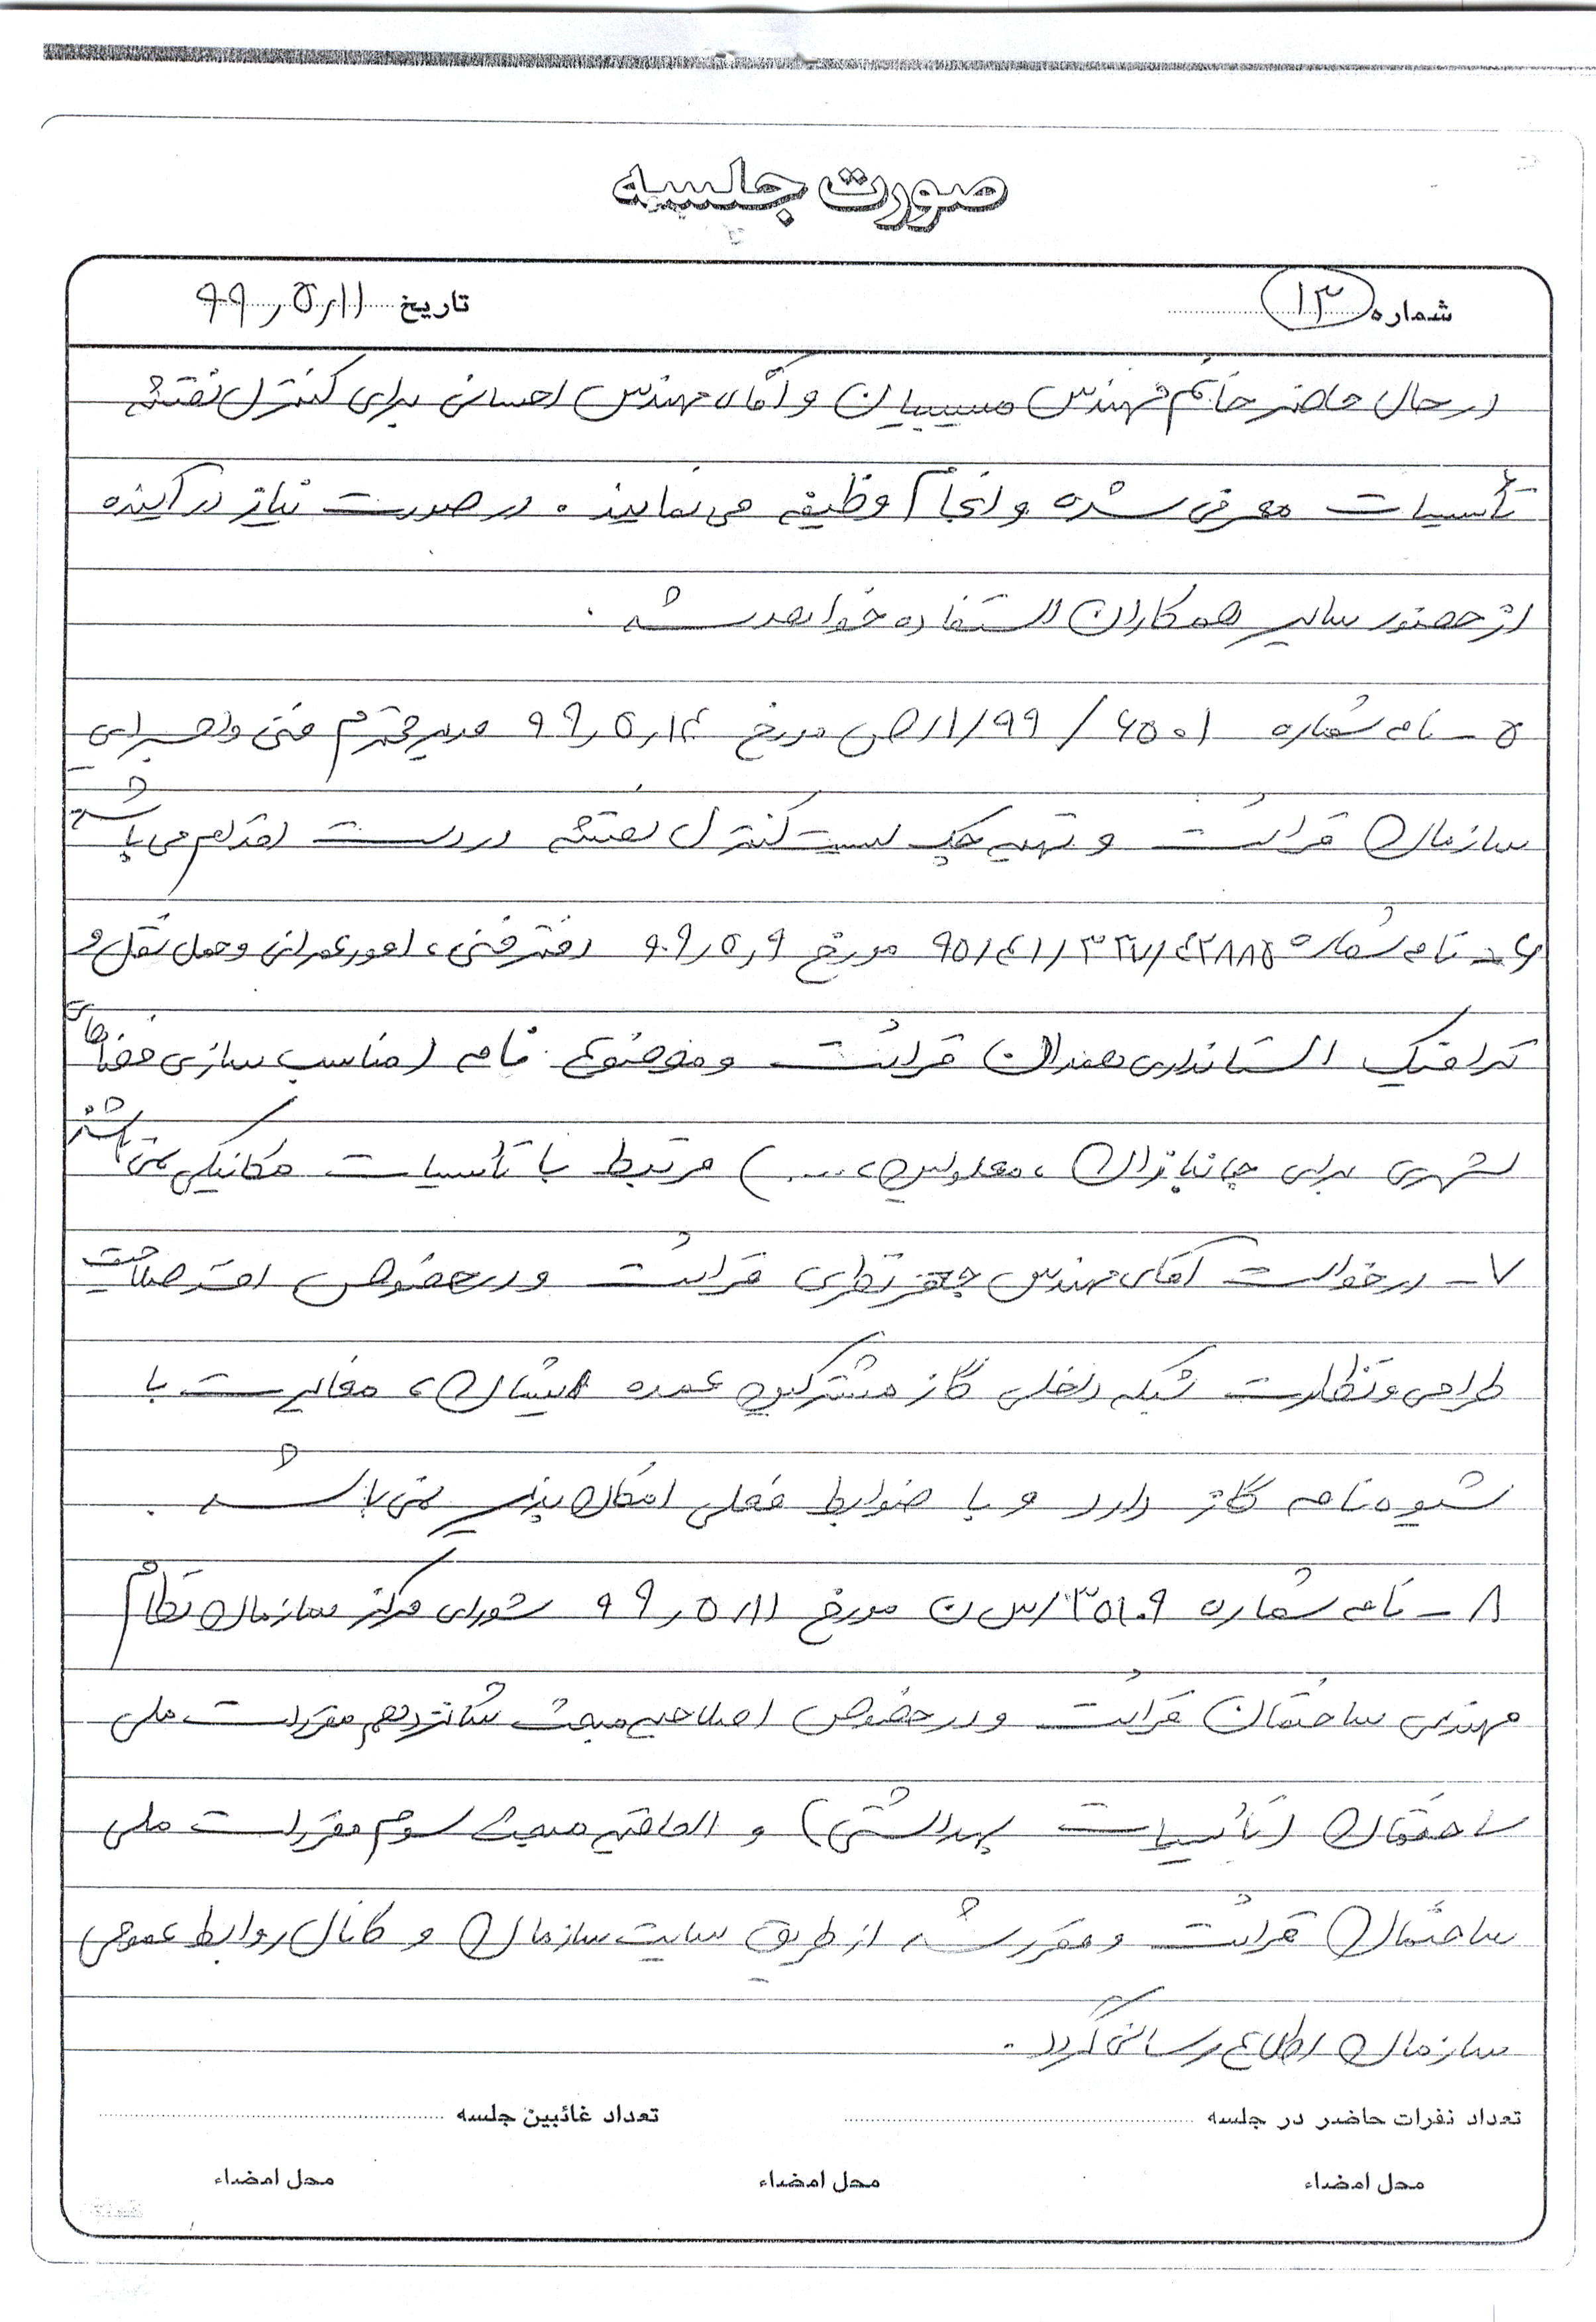 صورت جلسه
شماره ۱۳
تاریخ ۹۹٫۵٫۱۱
در حال حاضر خانم مهندس مسیبیان و آقای مهندس احسانی برای کنترل نقشه
تأسیسات معرفی شده و انجام وظیفه می نمایند. در صورت نیاز در آینده
از حضور سایر همکاران استفاده خواهد شد.
۵- نامه شماره ۶۵۰۱/۱/۹۹/ص مورخ ۹۹٫۵٫۱۴ مدیر محترم فنی و اجرایی
سازمان قرائت و تهیه چک لیست کنترل نقشه در دست اقدام می باشد
۶- نامه شماره ۹۵/۴۱/۳۳۷/۴۳۸۸۵ مورخ ۹۹٫۵٫۹ دفتر فنی، امور عمرانی و حمل نقل و
ترافیک استانداری همدان قرائت و موضوع نامه (مناسب سازی فضاهای
شهری برای جانبازان، معلولین، ...) مرتبط با تأسیسات مکانیکی نمی باشد
۷- درخواست آقای مهندس جعفر نظری قرائت و در خصوص اخذ صلاحیت
طراحی و نظارت شبکه داخلی گاز مشترکین عمده ایشان، مغایرت با
شیوه نامه گاز دارد و با ضوابط فعلی امکان پذیر نمی باشد.
۸- نامه شماره ۳۵۱۰۹/س ن مورخ ۹۹٫۵٫۱۱ شورای مرکز سازمان نظام
مهندسی ساختمان قرائت و در خصوص اصلاحیه مبحث شانزدهم مقررات ملی
ساختمان (تأسیسات بهداشتی) و الحاقیه مبحث سوم مقررات ملی
ساختمان قرائت و مقرر شد از طریق سایت سازمان و کانال روابط عمومی
سازمان اطلاع رسانی گردد.
تعداد نفرات حاضر در جلسه
تعداد غائبین جلسه
محل امضاء
محل امضاء
محل امضاء